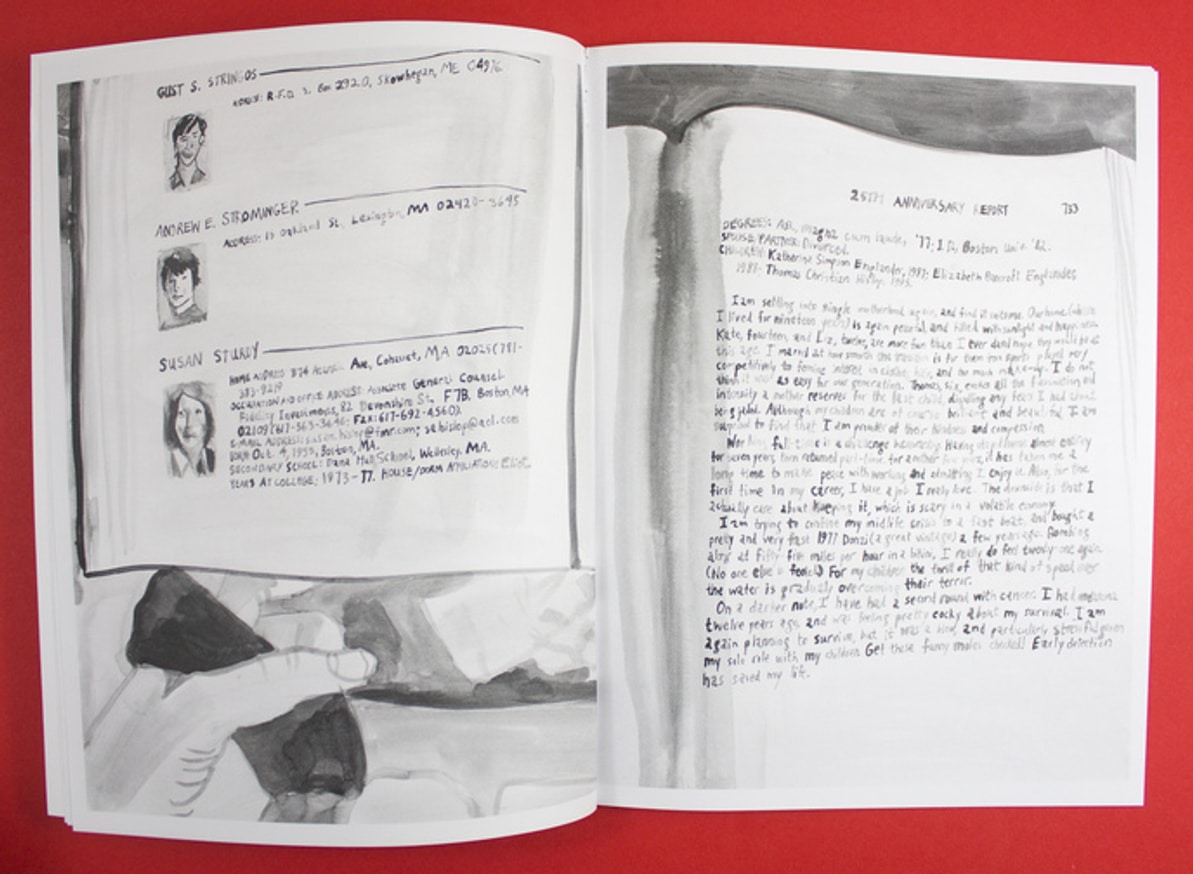 GUST S. STRINGOS
ADDRESS: R.F.D. 2, Box 2920, Skowhegan, ME 04976
ANDREW E. STROMINGER
ADDRESS: Oakland St., Lexington, MA 02420-3695
SUSAN STURDY
HOME ADDRESS: 374 Ave, Cohasset, MA 02025 (781-
383-9219
OCCUPATION AND OFFICE ADDRESS: Associate General Counsel
Fidelity Investments, 82 Devonshire St. F7B, Boston, MA
02109 (617-563-3646; FAX: 617-692-4560).
E-MAIL ADDRESS: susan.hisloy@fmr.com; sehisloy@aol.com
BORN Oct. 4, 1955, Boston, MA.
SECONDARY SCHOOL: Dana Hall School, Wellesley, MA.
YEARS AT COLLEGE: 1973-77. HOUSE/DORM AFFILIATION: Eliot.
25TH ANNIVERSARY REPORT 753
DEGREES: A.B., magna cum laude, '77; J.D., Boston Univ. '82.
SPOUSE/PARTNER: Divorced.
CHILDREN: Katherine Simpson Englander, 1987; Elizabeth Bancroft Englander,
1989; Thomas Christian 1995.
I am settling into single motherhood again, and find it welcome. Our home (where
I lived for nineteen years) is again peaceful and filled with sunlight and happiness.
Kate, fourteen, and Liz, twelve, are more fun than I ever dared hope they would be at
this age. I marvel at how smooth the is for them from sports played very
competitively to feminine interest in clothes, hair, and too much make-up. I do not
think it was as easy for our generation. Thomas, six, enjoys all the fascination and
intensity a mother reserves for the last child, dispelling any fears I had about
being jaded. Although my children are of course brilliant and beautiful, I am
surprised to find that I am proudest of their kindness and compassion.
Working full-time is a challenge Having stayed home almost entirely
for seven years, then returned part-time for another few more, it has taken me a
long time to make peace with working and admitting I enjoy it. Also, for the
first time in my career, I have a job I really love. The downside is that I
actually care about keeping it, which is scary in a volatile economy.
I am trying to confine my midlife crisis to a fast boat, and bought a
pretty and very fast 1977 Donzi (a great vintage) a few years ago. Bombing
along at fifty-five miles per hour in a bikini, I really do feel twenty-one again.
(No one else is fooled.) For my children the thrill of that kind of speed over
the water is gradually overcoming their terror.
On a darker note, I have had a second round with cancer. I had melanoma
twelve years ago, and was feeling pretty cocky about my survival. I am
again planning to survive, but it was a blow, and particularly stressful given
my solo role with my children. Get those funny moles checked! Early detection
has saved my life.